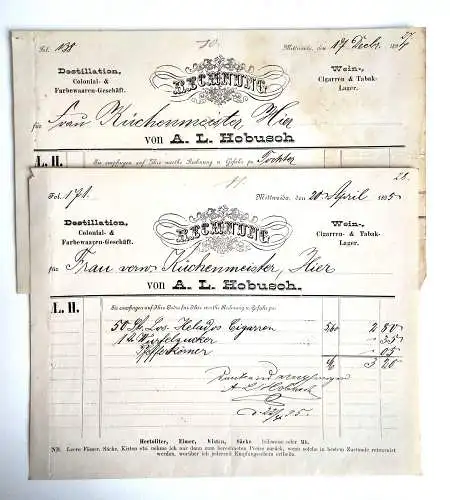 Fol. 138
Mittweida, den 17 Decbr. 1894
Destillation,
Colonial- &
Farbewaaren-Geschäft.
RECHNUNG
Wein-,
Cigarren & Tabak-
Lager.
für Frau Küchenmeister, Hier
von A. L. Hobusch
L. II.
Sie empfingen auf Ihre werthe Rechnung u. Gefahr pr. Tochter
Fol. 191.
Mittweida, den 20 April 1895
Destillation,
Colonial- &
Farbewaaren-Geschäft.
RECHNUNG
Wein-,
Cigarren- & Tabak-
Lager.
für Frau verw. Küchenmeister, Hier
von A. L. Hobusch.
L. II.
50 St. Los. Cigarren 5.60 2 80
1 Würfelzucker 35
Pfefferkörner 05
3 20
Dankend empfangen
A. L. Hobusch
Hectoliter, Eimer, Kisten, Säcke leihweise oder Mk.
NB. Leere Fässer, Säcke, Kisten etc. nehme ich nur dann zum berechneten Preise zurück, wenn solche in bestem Zustande retournirt
werden, worüber ich jederzeit Empfangschein ertheile.